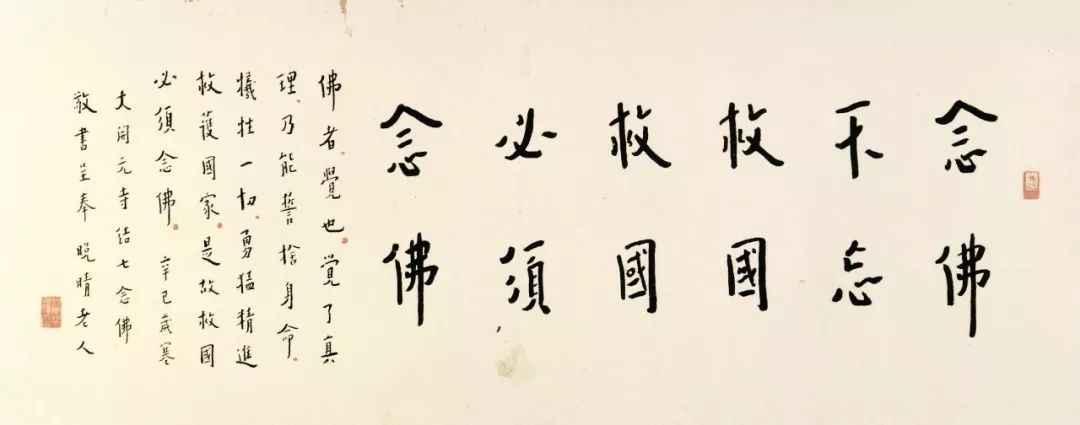 念佛
不忘
救國
救國
必須
念佛
佛者覺也覚了真
理乃能誓捨身命
犧牲一切勇猛精進
救護國家是故救國
必須念佛 辛巳歲寒
大開元寺結七念佛
敬書呈奉 晚晴老人